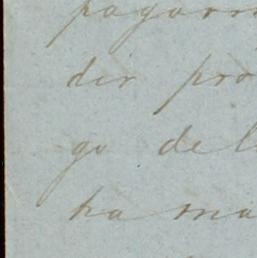 pagarm
dir pro
go del
ha ma